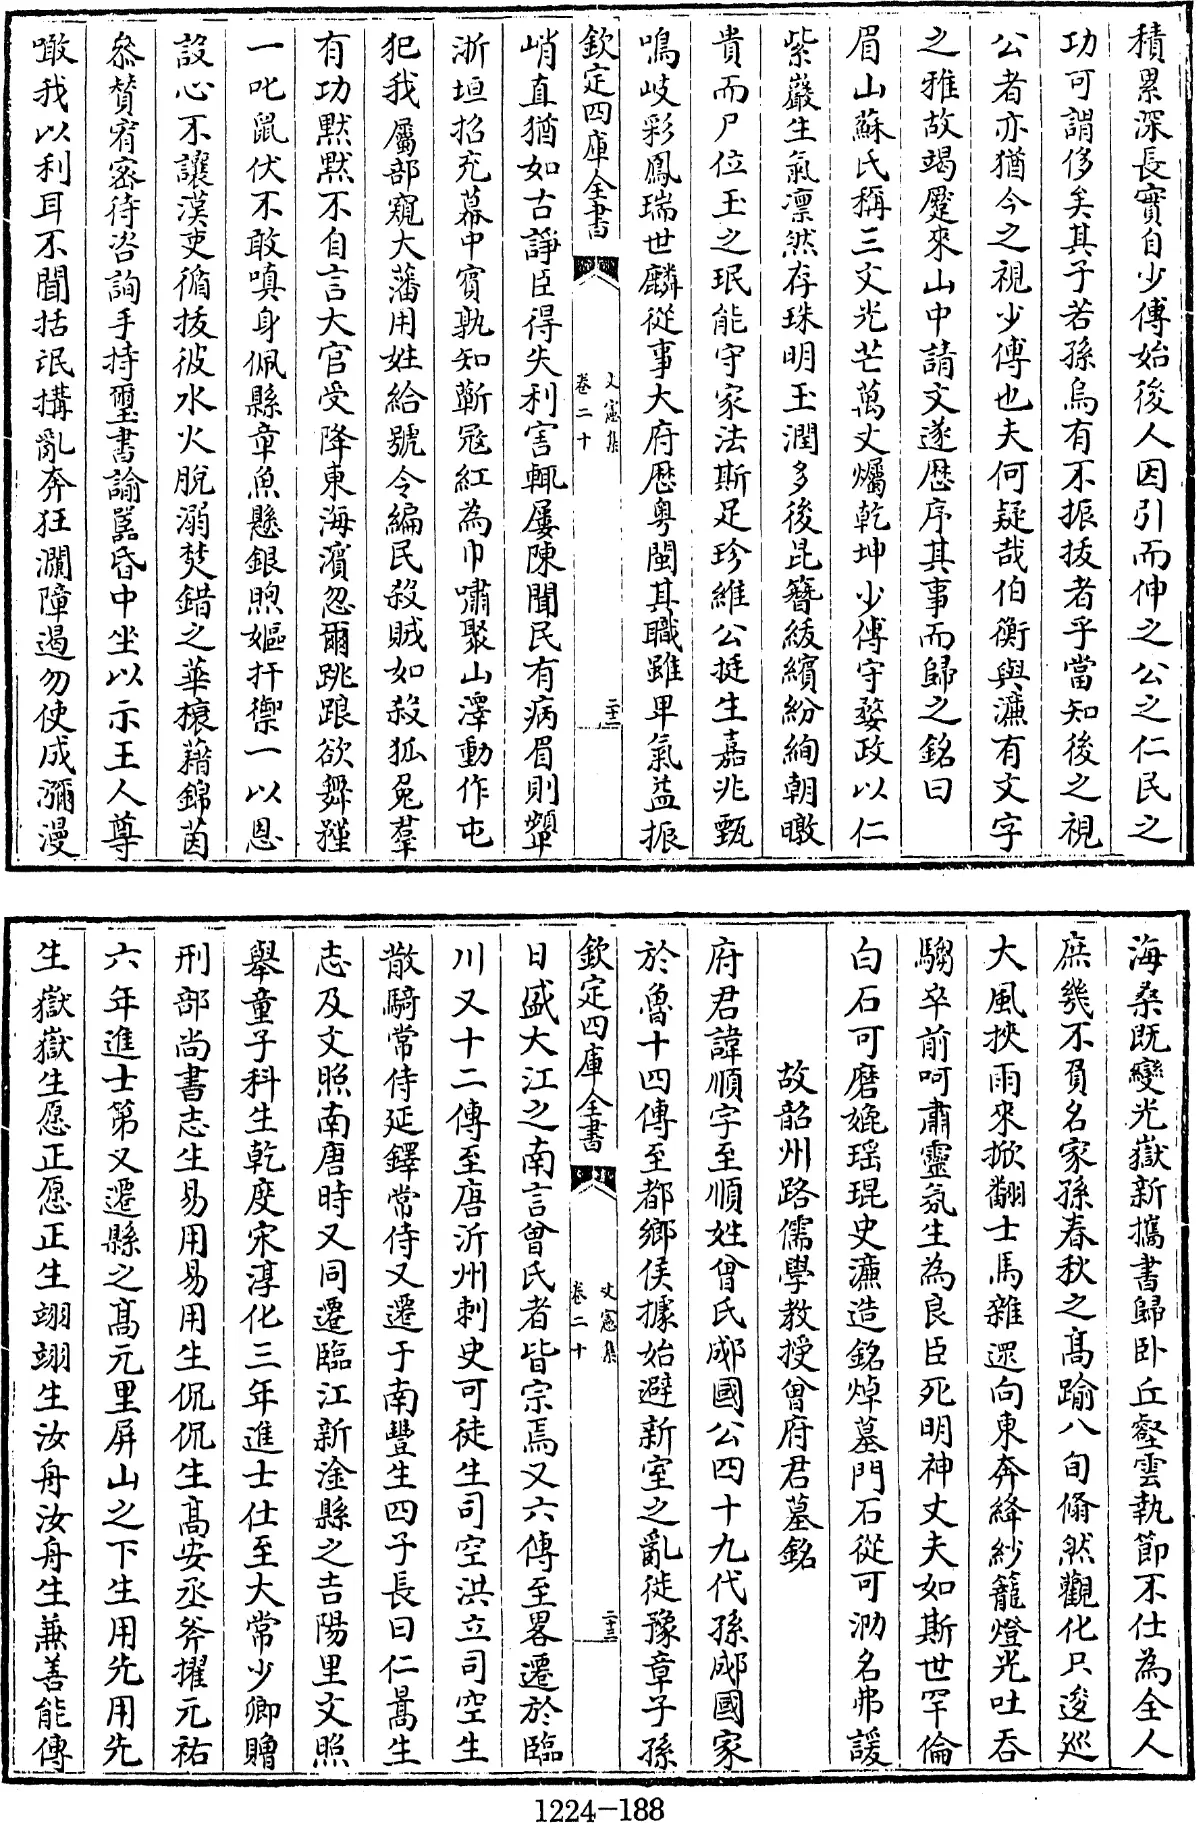 積累深長實自少傅始後人因引而伸之公之仁民之
功可謂侈矣其子若孫烏有不振拔者乎當知後之視
公者亦猶今之視少傅也夫何疑哉伯衡與濂有文字
之雅故竭蹷來山中請文遂歴序其事而歸之銘曰
眉山蘇氏稱三文光芒萬丈爥乾坤少傅守婺政以仁
紫巖生氣凛然存珠明玉潤多後昆簪紱繽紛絢朝暾
貴而尸位玉之珉能守家法斯足珍維公挺生嘉兆甄
鳴岐彩鳳瑞世麟從事大府歴粤閩其職雖卑氣益振
欽定四庫全書
文憲集
卷二十
二十二
峭直猶如古諍臣得失利害輒屢陳聞民有病眉則顰
浙垣招充幕中賔孰知蘄冦紅為巾嘯聚山澤動作屯
犯我屬部窺大藩用姓給號令編民殺賊如殺狐兔羣
有功黙黙不自言大官受降東海濱忽爾跳踉欲舞獉
一叱鼠伏不敢嗔身佩縣章魚懸銀煦嫗扞禦一以恩
設心不讓漢吏循拔彼水火脱溺焚錯之華榱藉錦茵
叅賛宥密待咨詢手持璽書諭嚚昏中坐以示王人尊
噉我以利耳不聞括氓搆亂奔狂瀾障遏勿使成瀰漫
海桑既變光嶽新攜書歸卧丘壑雲執節不仕為全人
庶幾不負名家孫春秋之髙踰八旬翛然觀化只逡廵
大風挾雨來掀翻士馬雜遝向東奔絳紗籠燈光吐吞
騶卒前呵肅靈氛生為良臣死明神丈夫如斯世罕倫
白石可磨媲瑶琨史濂造銘焯墓門石從可泐名弗諼
故韶州路儒學教授曾府君墓銘
府君諱順字至順姓曾氏郕國公四十九代孫郕國家
於魯十四傳至都鄉侯據始避新室之亂徙豫章子孫
欽定四庫全書
文憲集
卷二十
二十三
日盛大江之南言曾氏者皆宗焉又六傳至畧遷於臨
川又十二傳至唐沂州刺史可徒生司空洪立司空生
散騎常侍延鐸常侍又遷于南豐生四子長曰仁暠生
志及文照南唐時又同遷臨江新淦縣之吉陽里文照
舉童子科生乾度宋淳化三年進士仕至大常少卿贈
刑部尚書志生易用易用生侃侃生髙安丞斧擢元祐
六年進士第又遷縣之髙元里屏山之下生用先用先
生嶽嶽生愿正愿正生翊翊生汝舟汝舟生兼善能傳
1224-188